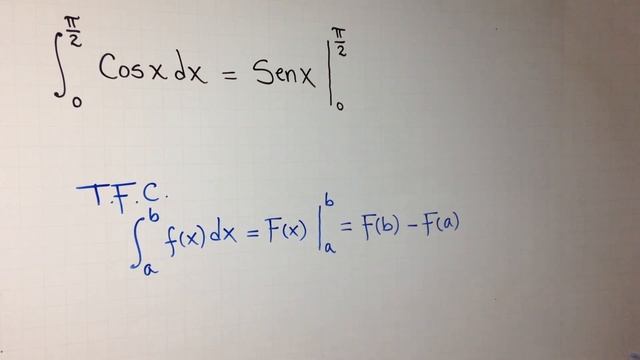 ∫₀^{π/2} Cosx dx = Senx |₀^{π/2}
T.F.C.
∫ₐᵇ f(x) dx = F(x) |ₐᵇ = F(b) − F(a)